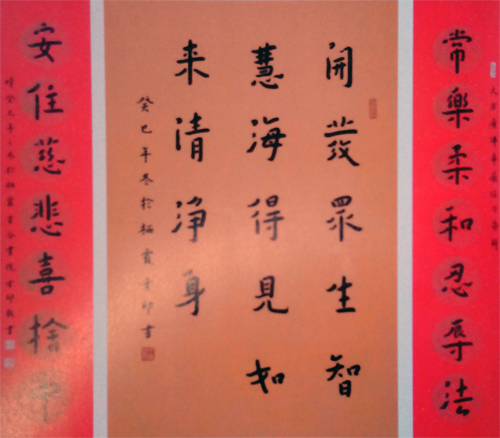 常樂柔和忍辱法
開發眾生智
慧海得見如
来清净身
癸巳年冬於栖霞玄印書
安住慈悲喜捨中